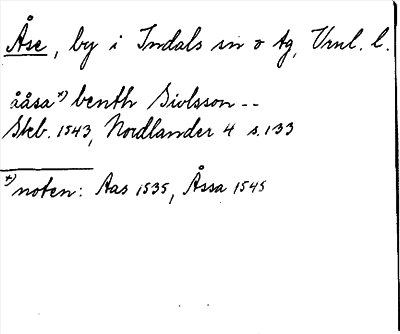 Åse, by i Indals sn o tg, Vrnl. l.
ååsa *) benth Siolsson --
Skb. 1543, Nordlander 4 s. 133
*) noten: Aas 1535, Åssa 1545